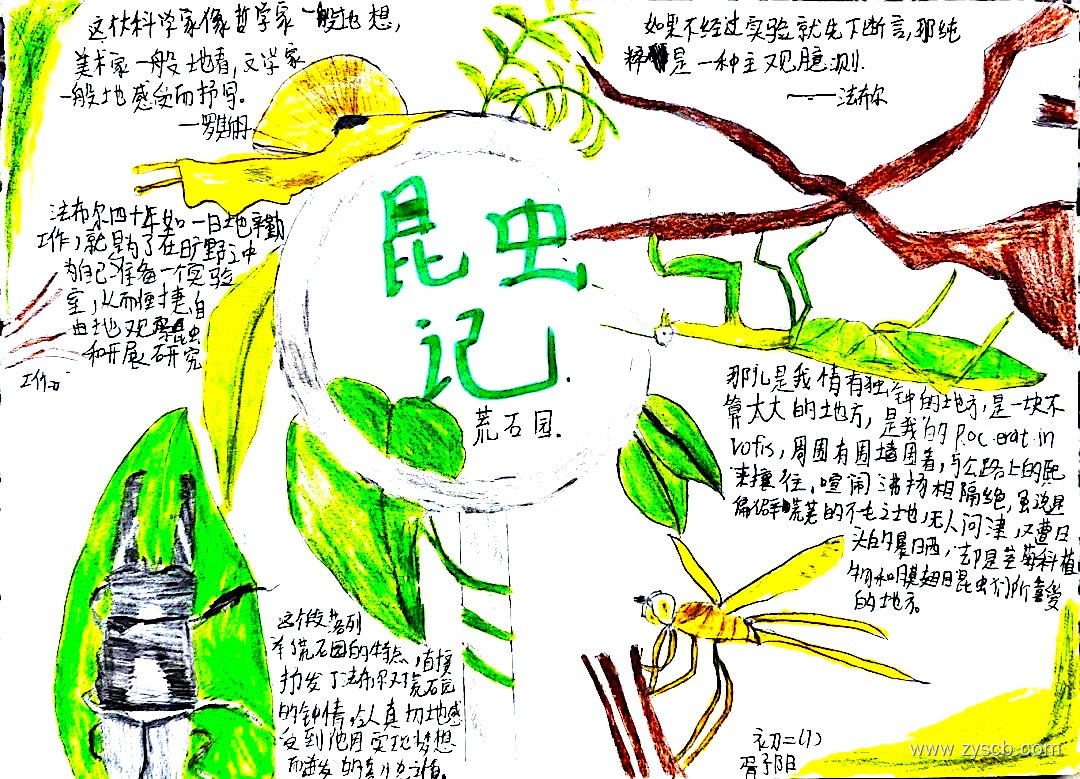 这大科学家像哲学家一般地想,
美术家一般地看,文学家
一般地感受而抒写.
—罗斯丹
如果不经过实验就先下断言,那纯
粹是一种主观臆测.
——法布尔
昆虫
记
荒石园.
法布尔四十年如一日地辛勤
工作,就是为了在旷野之中
为自己准备一个实验
室,从而便捷自
由地观察昆虫
和开展研究
工作。
那儿是我情有独钟的地方,是一块不
算太大的地方,是我的
周围有围墙围着,与公路上的熙
来攘往,喧闹沸扬相隔绝,虽说是
偏僻荒芜的不毛之地,无人问津,又遭日
头的暴晒,却是
植
物和膜翅目昆虫们所喜爱
的地方。
这个段落列
举荒石园的特点,直接
抒发了法布尔对荒石园
的钟情,令人真切地感
受到他用实地梦想
而
初二(1)
www.zyscb.com